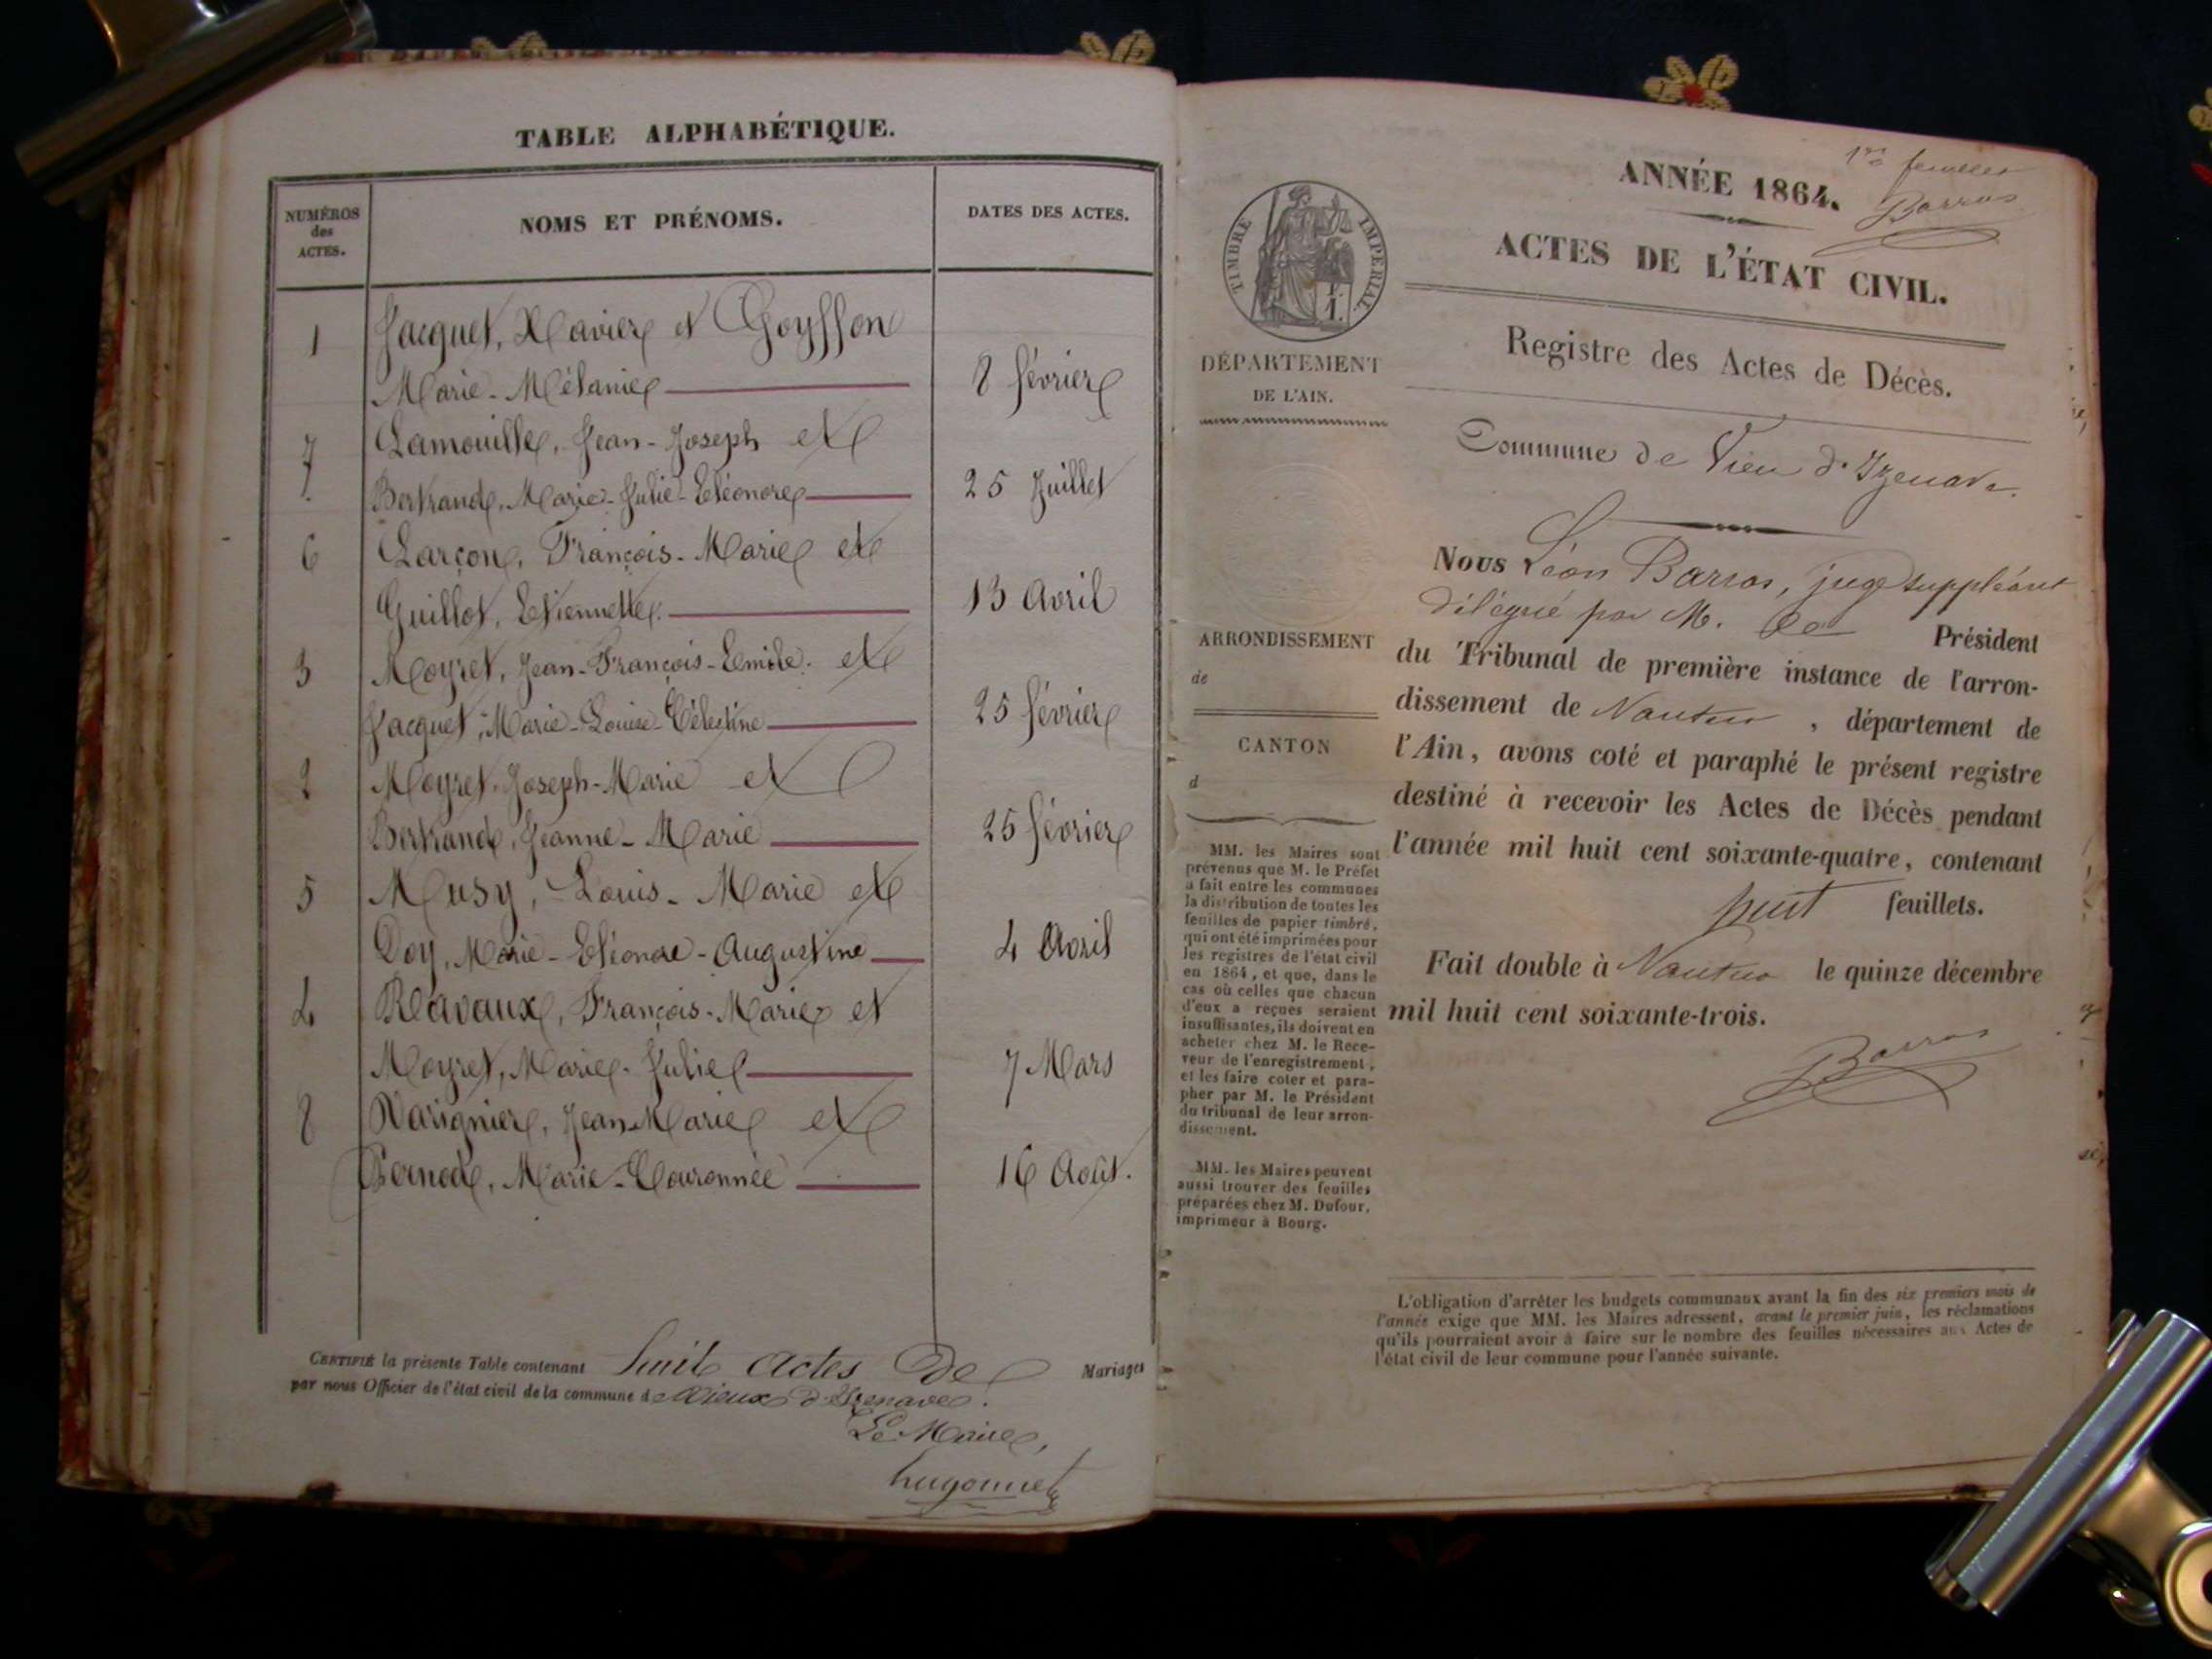 TABLE ALPHABÉTIQUE.
NUMÉROS
des
ACTES.
NOMS ET PRÉNOMS.
DATES DES ACTES.
1 Jacquet, Xavier et Goyffon
Marie-Mélanie 8 février
7 Lamouille, Jean-Joseph et
Bertrand, Marie-Julie-Eléonore 25 Juillet
6 Larçon, François-Marie et
Guillot, Etiennette. 13 Avril
3 Moyret, Jean-François-Emile. et
Jacquet, Marie-Louise-Célestine 25 février
2 Moyret, Joseph-Marie et
Bertrand, Jeanne-Marie 25 février
5 Musy, Louis-Marie et
Doy, Marie-Eléonore-Augustine 4 Avril
4 Ravaux, François-Marie et
Moyret, Marie-Julie 7 Mars
8 Varignier, Jean-Marie et
Bernod, Marie-Couronnée 16 Août.
CERTIFIÉ la présente Table contenant huit actes de Mariages
par nous Officier de l'état civil de la commune de Vieux d'Izenave.
Le Maire,
hugonnet
1er feuillet
Barras
ANNÉE 1864.
ACTES DE L'ÉTAT CIVIL.
TIMBRE IMPERIAL
DÉPARTEMENT
DE L'AIN.
Registre des Actes de Décès.
Commune de Vieu d'Izenave.
ARRONDISSEMENT
de
CANTON
d
MM. les Maires sont
prévenus que M. le Préfet
a fait entre les communes
la distribution de toutes les
feuilles de papier timbré,
qui ont été imprimées pour
les registres de l'état civil
en 1864, et que, dans le
cas où celles que chacun
d'eux a reçues seraient
insuffisantes, ils doivent en
acheter chez M. le Rece-
veur de l'enregistrement,
et les faire coter et para-
pher par M. le Président
du tribunal de leur arron-
dissement.
MM. les Maires peuvent
aussi trouver des feuilles
préparées chez M. Dufour,
imprimeur à Bourg.
Nous Léon Barras, juge suppléant
délégué par M. le Président
du Tribunal de première instance de l'arron-
dissement de Nantua, département de
l'Ain, avons coté et paraphé le présent registre
destiné à recevoir les Actes de Décès pendant
l'année mil huit cent soixante-quatre, contenant
huit feuillets.
Fait double à Nantua le quinze décembre
mil huit cent soixante-trois.
Barras
L'obligation d'arrêter les budgets communaux avant la fin des six premiers mois de
l'année exige que MM. les Maires adressent, avant le premier juin, les réclamations
qu'ils pourraient avoir à faire sur le nombre des feuilles nécessaires aux Actes de
l'état civil de leur commune pour l'année suivante.